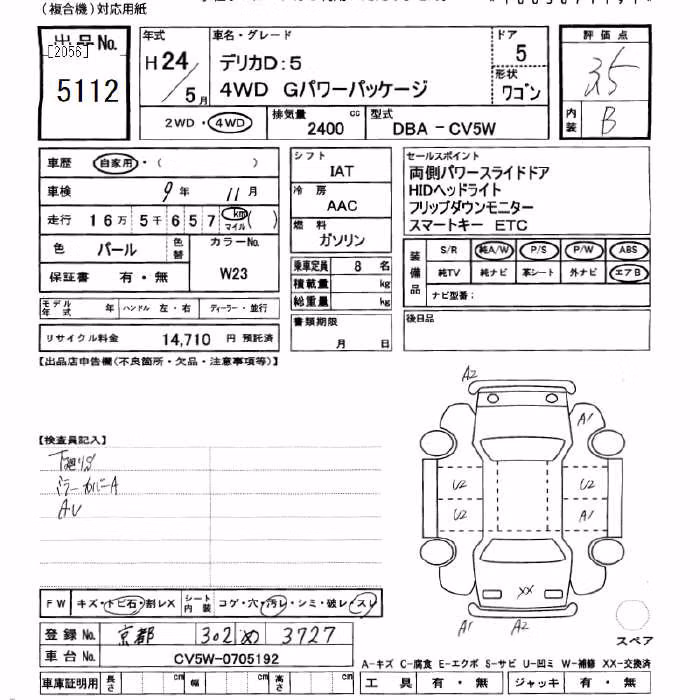 （複合機）対応用紙
出品No.
[2056]
5112
年式 H24／5月
車名・グレード
デリカD：5
4WD Gパワーパッケージ
ドア 5
形状 ワゴン
2WD・4WD
排気量 2400 cc
型式 DBA－CV5W
評価点 3.5
内装 B
車歴 自家用・（ ）
車検 9年 11月
走行 16万5千657 km マイル（ ）
色 パール 色替 カラーNo. W23
保証書 有・無
モデル年式 年 ハンドル 左・右 ディーラー・並行
リサイクル料金 14,710 円 預託済
シフト IAT
冷房 AAC
燃料 ガソリン
乗車定員 8 名
積載量 kg
総重量 kg
書類期限
月 日
セールスポイント
両側パワースライドドア
HIDヘッドライト
フリップダウンモニター
スマートキー ETC
装備品
S/R 純A/W P/S P/W ABS
純TV 純ナビ 革シート 外ナビ エアB
ナビ型番：
後日品
【出品店申告欄（不良箇所・欠品・注意事項等）】
【検査員記入】
下廻りS
ミラーカバーA
AU
A2
A1
U2 U2
U2 A1
XX
A1 A2
スペア
FW キズ・トビ石・割レX シート内装 コゲ・穴・汚レ・シミ・破レ・スレ
登録No. 京都 302 め 3727
車台No. CV5W-0705192
車庫証明用 長さ cm 幅 cm 高さ cm
A－キズ C－腐食 E－エクボ S－サビ U－凹ミ W－補修 XX－交換済
工具 有・無 ジャッキ 有・無